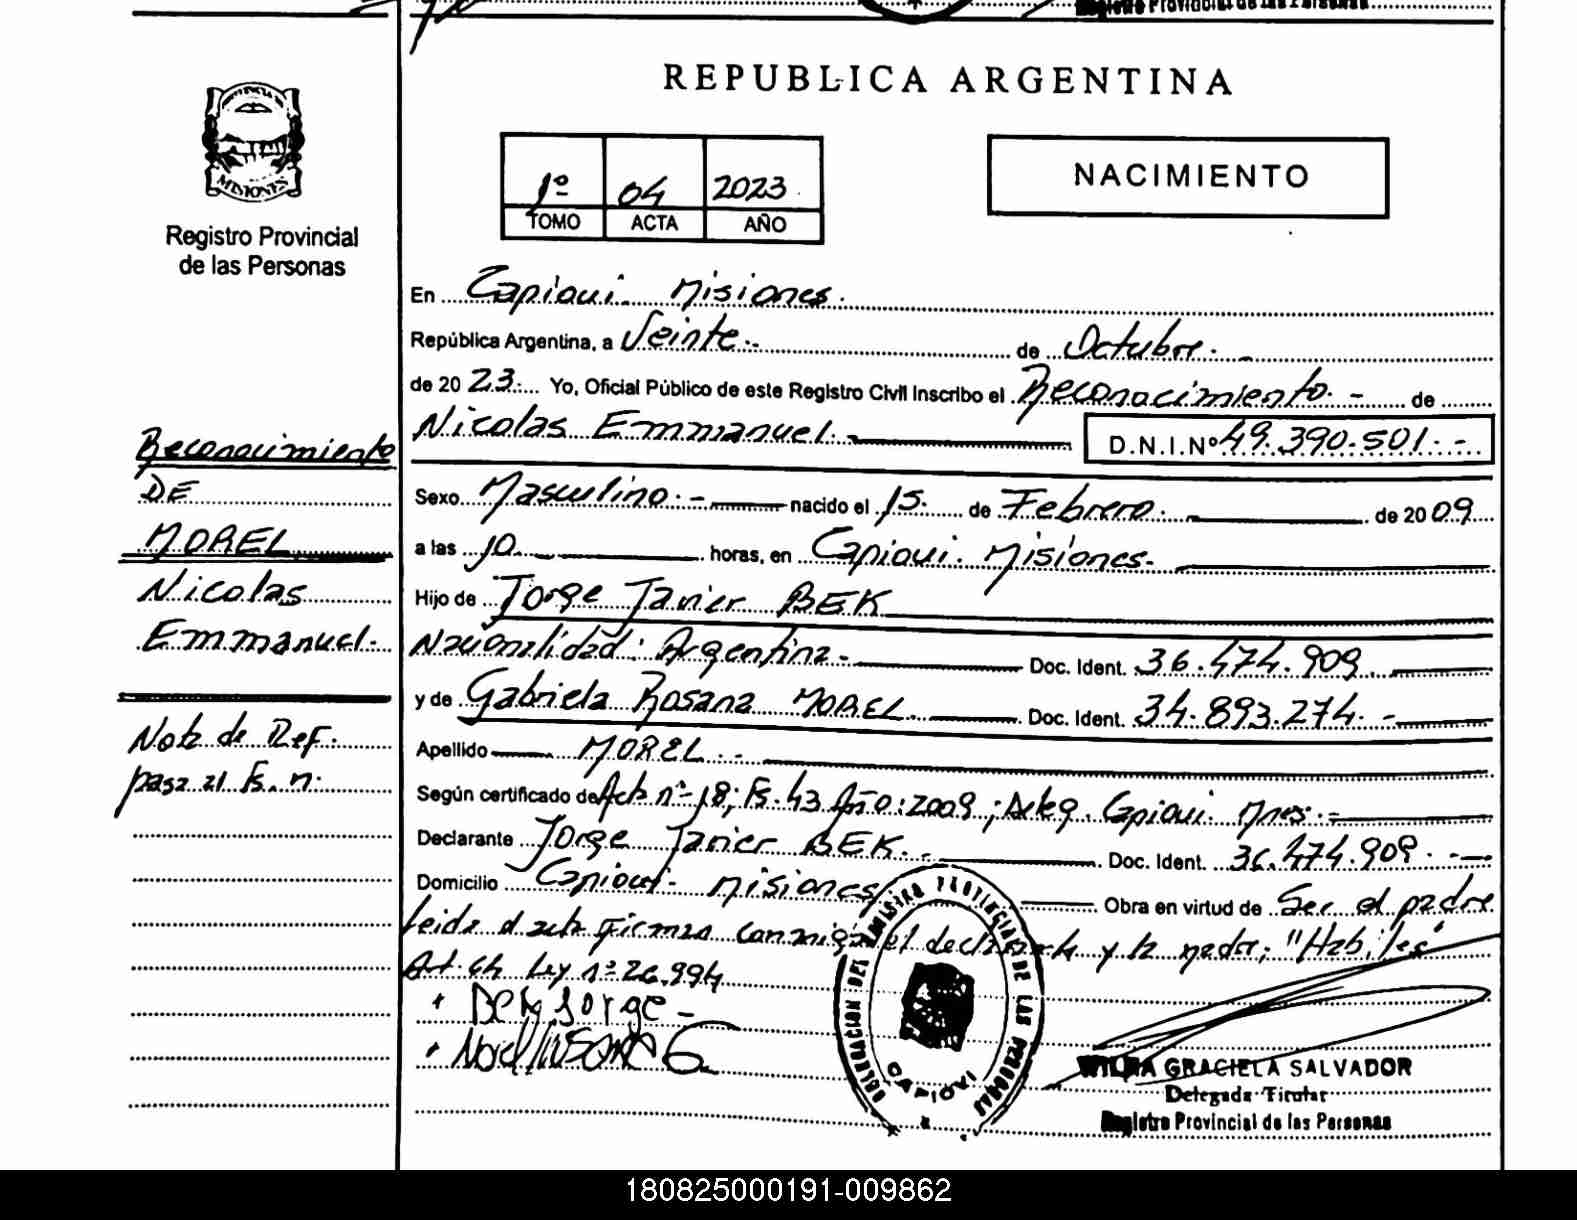 Registro Provincial de las Personas
REPUBLICA ARGENTINA
MISIONES
Registro Provincial
de las Personas
1º 04 2023
TOMO ACTA AÑO
NACIMIENTO
En Capioui. Misiones.
República Argentina, a Veinte.- de Octubre.-
de 20 23.- Yo, Oficial Público de este Registro Civil Inscribo el Reconocimiento.- de
Nicolas Emmanuel.- D.N.I.Nº 49.390.501.-
Sexo Masculino.- nacido el 15. de Febrero.- de 20 09
a las 10 horas, en Capioui. Misiones-
Hijo de Jorge Javier BEK
Nacionalidad: Argentina- Doc. Ident. 36.474.909
y de Gabriela Rosana MOREL Doc. Ident. 34.893.274.-
Apellido MOREL.-
Según certificado de Acta nº-18; Fs.43 Año:2009; Deleg. Capioui. Mnes.-
Declarante Jorge Javier BEK.- Doc. Ident. 36.474.909.-
Domicilio Capioui- Misiones Obra en virtud de Ser el padre
Leida el acta Firman conmigo el declarante y la madre; "Habiles"
Art. 64 Ley nº 26.994
Bek Jorge
Morel G
Reconocimiento
DE
MOREL
Nicolas
Emmanuel-
Nota de Ref.
pasa al Fs. n.
DELEGACION DEL REGISTRO PROVINCIAL DE LAS PERSONAS
CAPIOVI
WILMA GRACIELA SALVADOR
Delegada Titular
Registro Provincial de las Personas
180825000191-009862